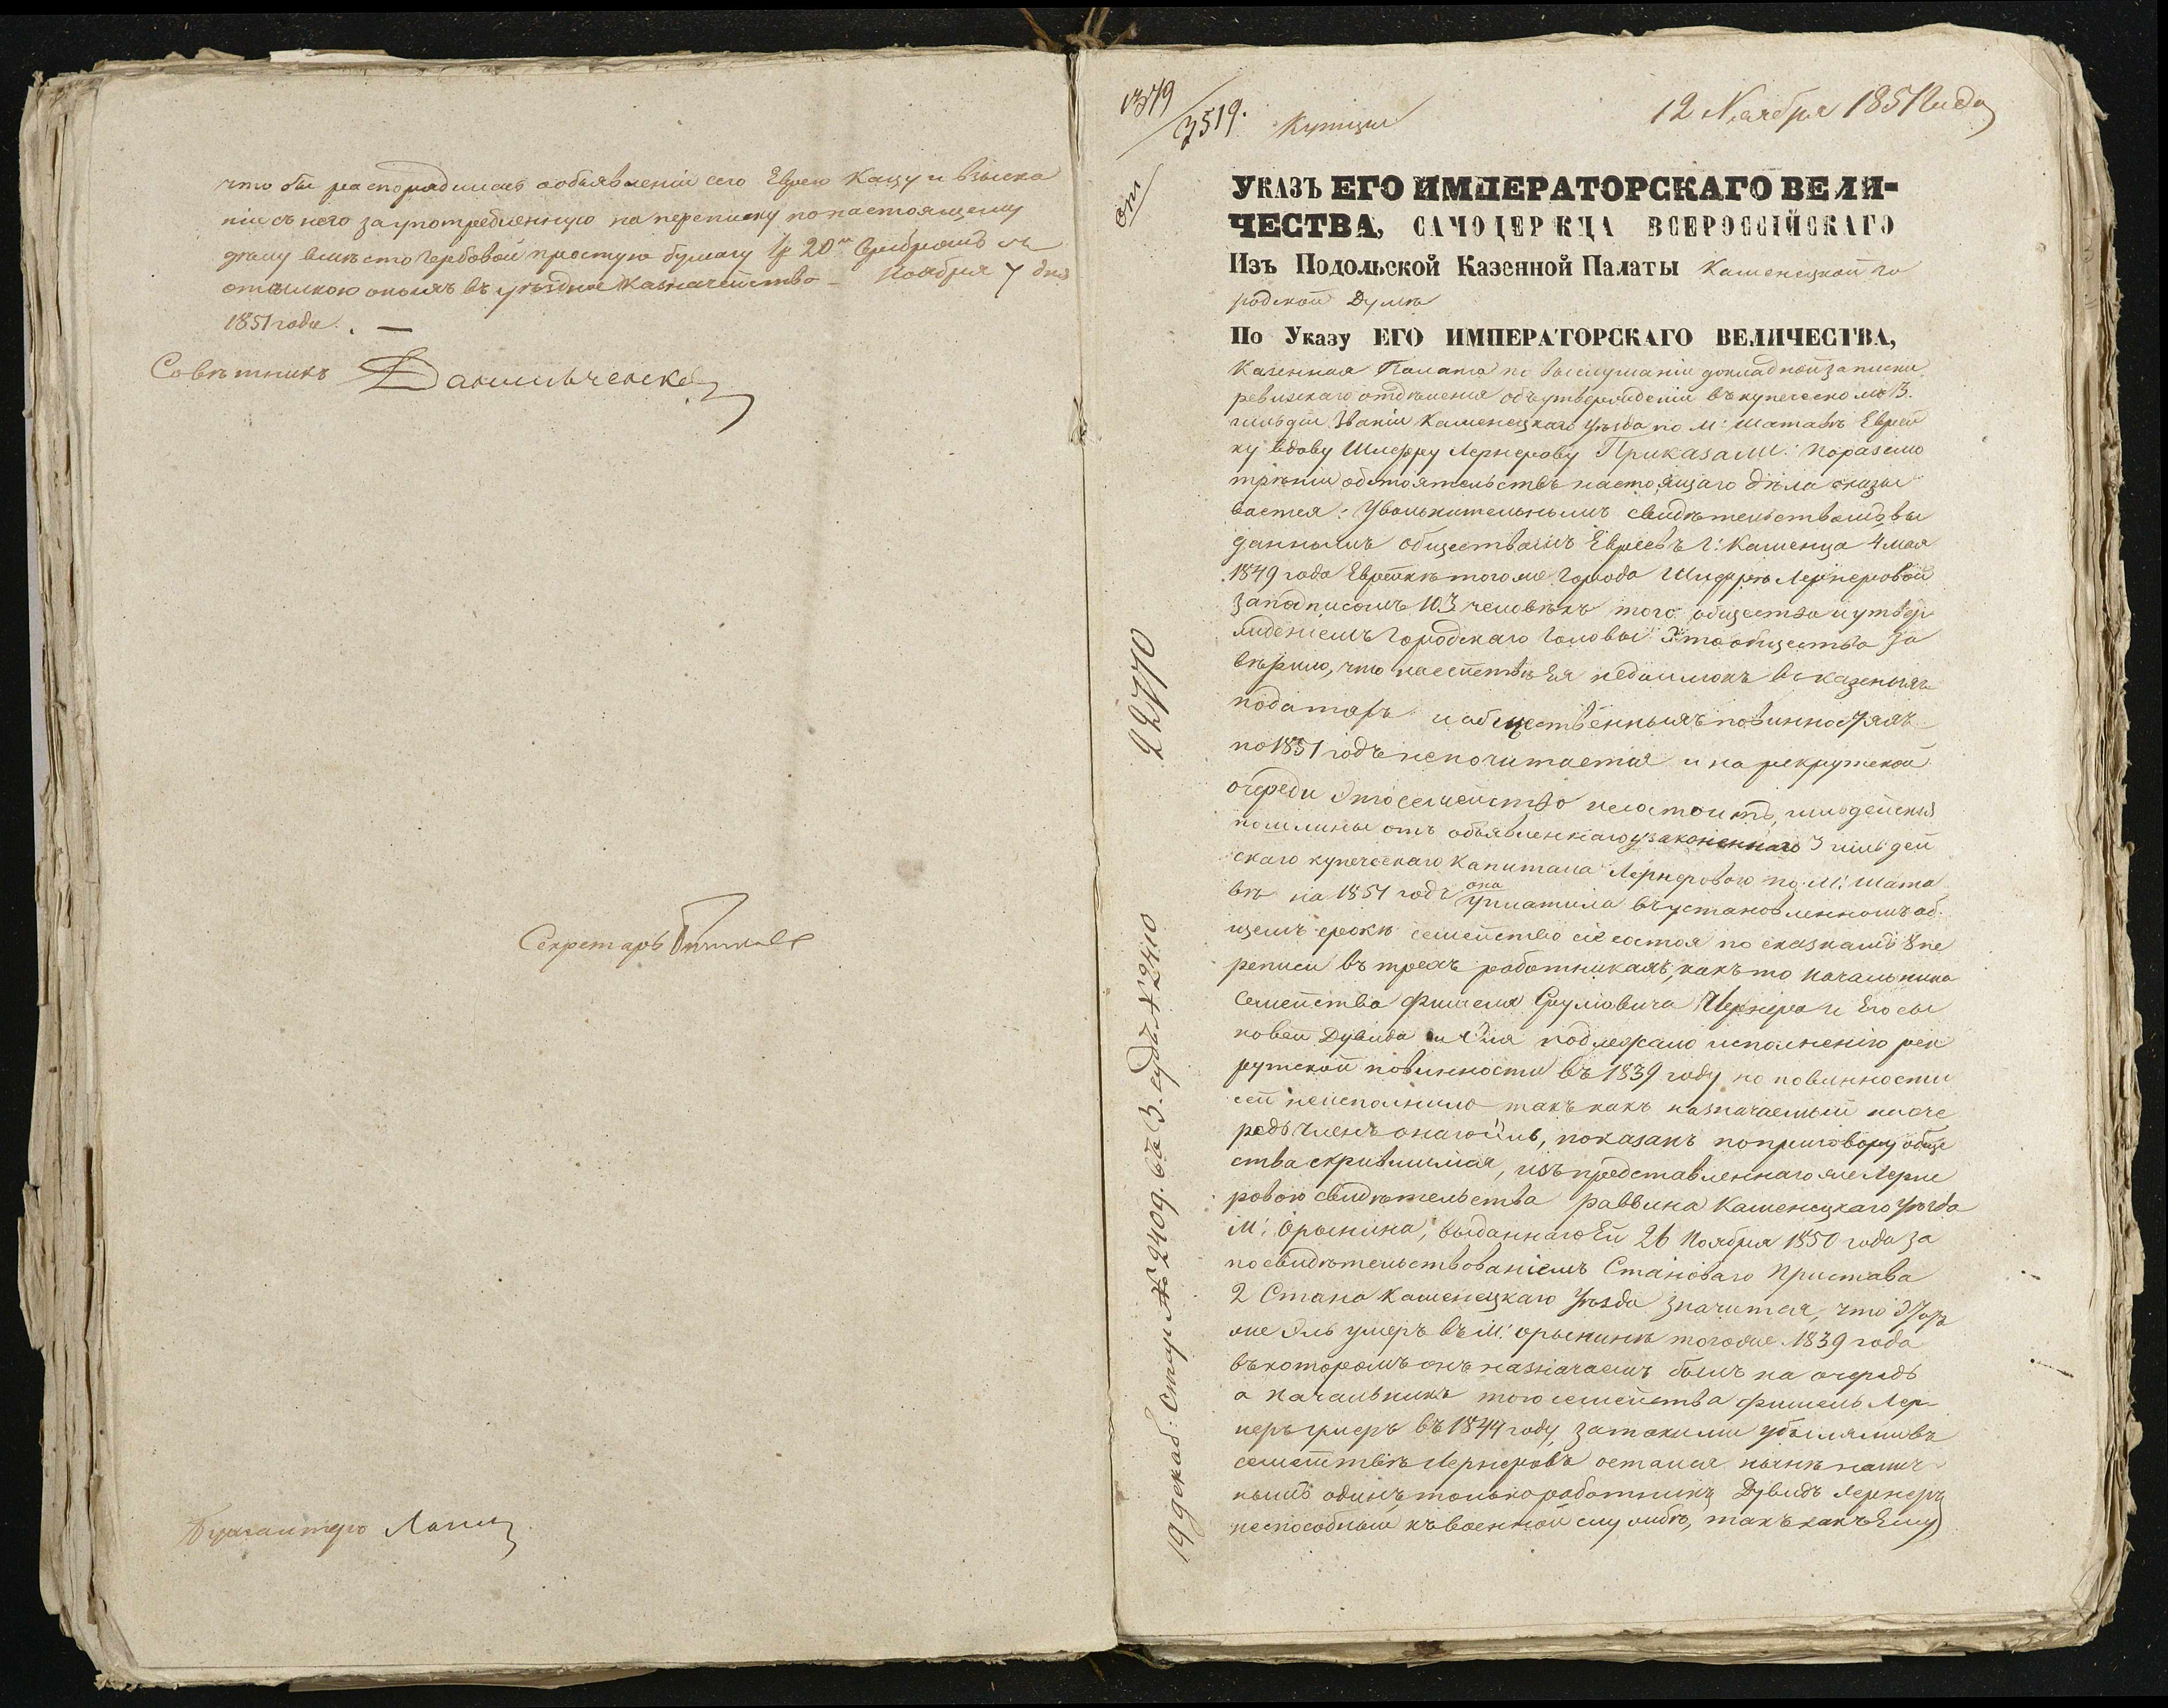 что бы распорядилась о объявленіи сего Еврею Кацу и взыска
ніи съ него за употребленную на переписку по настоящему
дѣлу вмѣсто гербовой простую бумагу 1 р 20 к серебромъ съ
отсылкою оныхъ въ уѣздное Казначейство - Ноября 7 дня
1851 года. —
Совѣтникъ
Секретарь
Бухгалтеръ
3519.
Купцы
12 Ноября 1851 года
УКАЗЪ ЕГО ИМПЕРАТОРСКАГО ВЕЛИ-
ЧЕСТВА, САМОДЕРЖЦА ВСЕРОССІЙСКАГО
Изъ Подольской Казенной Палаты Каменецкой го
родской Думѣ
По Указу ЕГО ИМПЕРАТОРСКАГО ВЕЛИЧЕСТВА,
Казенная Палата по выслушаніи докладной записки
ревизскаго отдѣленія объ утвержденіи въ купеческомъ 3.
гильдіи званіи Каменецкаго уѣзда по М: Шатавѣ Еврей
ку вдову Шифру Лернерову Приказали: по разсмо
трѣніи обстоятельствъ настоящаго дѣла оказы
вается: Увольнительнымъ свидѣтельствомъ вы
даннымъ обществомъ Евреевъ г: Каменца 4 мая
1849 года Еврейкѣ того же города Шифрѣ Лернеровой
за подписомъ 103 человѣкъ того общества и утвер
жденіемъ Городскаго Головы это общество за
вѣрило, что на семействѣ Ея недоимокъ въ казенныхъ
податяхъ и общественныхъ повинностяхъ
по 1851 годъ не почитается и на рекрутской
очереди это семейство не состоитъ, гильдейскія
пошлины отъ объявленнаго узаконеннаго 3 гильдей
скаго купеческаго капитала Лернеровою по М: Шата
вѣ на 1851 годъ она уплатила въ установленномъ об
щемъ срокѣ семейство сіе состоя по сказкамъ 8 пе
реписи въ трехъ работникахъ, какъ то начальника
семейства Фишеля Срулiовича Лернера и Его сы
новей Дувида и Эля подлежало исполненію рек
рутской повинности въ 1839 году но повинности
сей неисполнило такъ какъ назначаемый на оче
редь членъ онаго Эль, показанъ по приговору обще
ства скрившимся, изъ представленнаго же Лерне
ровою свидѣтельства раввина Каменецкаго уѣзда
М: Орынина, выданнаго Ей 26 Ноября 1850 года за
посвидѣтельствованіемъ Становаго Пристава
2 Стана Каменецкаго Уѣзда значится, что этотъ
же Эль умеръ въ М: Орынинѣ того же 1839 года
въ которомъ онъ назначаемъ былъ на очередь
а начальникъ того семейства Фишель Лер
неръ умеръ въ 1844 году, за такими убылями въ
семействѣ Лернеровъ остался нынѣ налич
нымъ одинъ только работникъ Дувидъ Лернеръ
неспособный къ военной службѣ, такъ какъ Ему
22770
19 декаб: Стар № 2409. 6а 3. № 2410